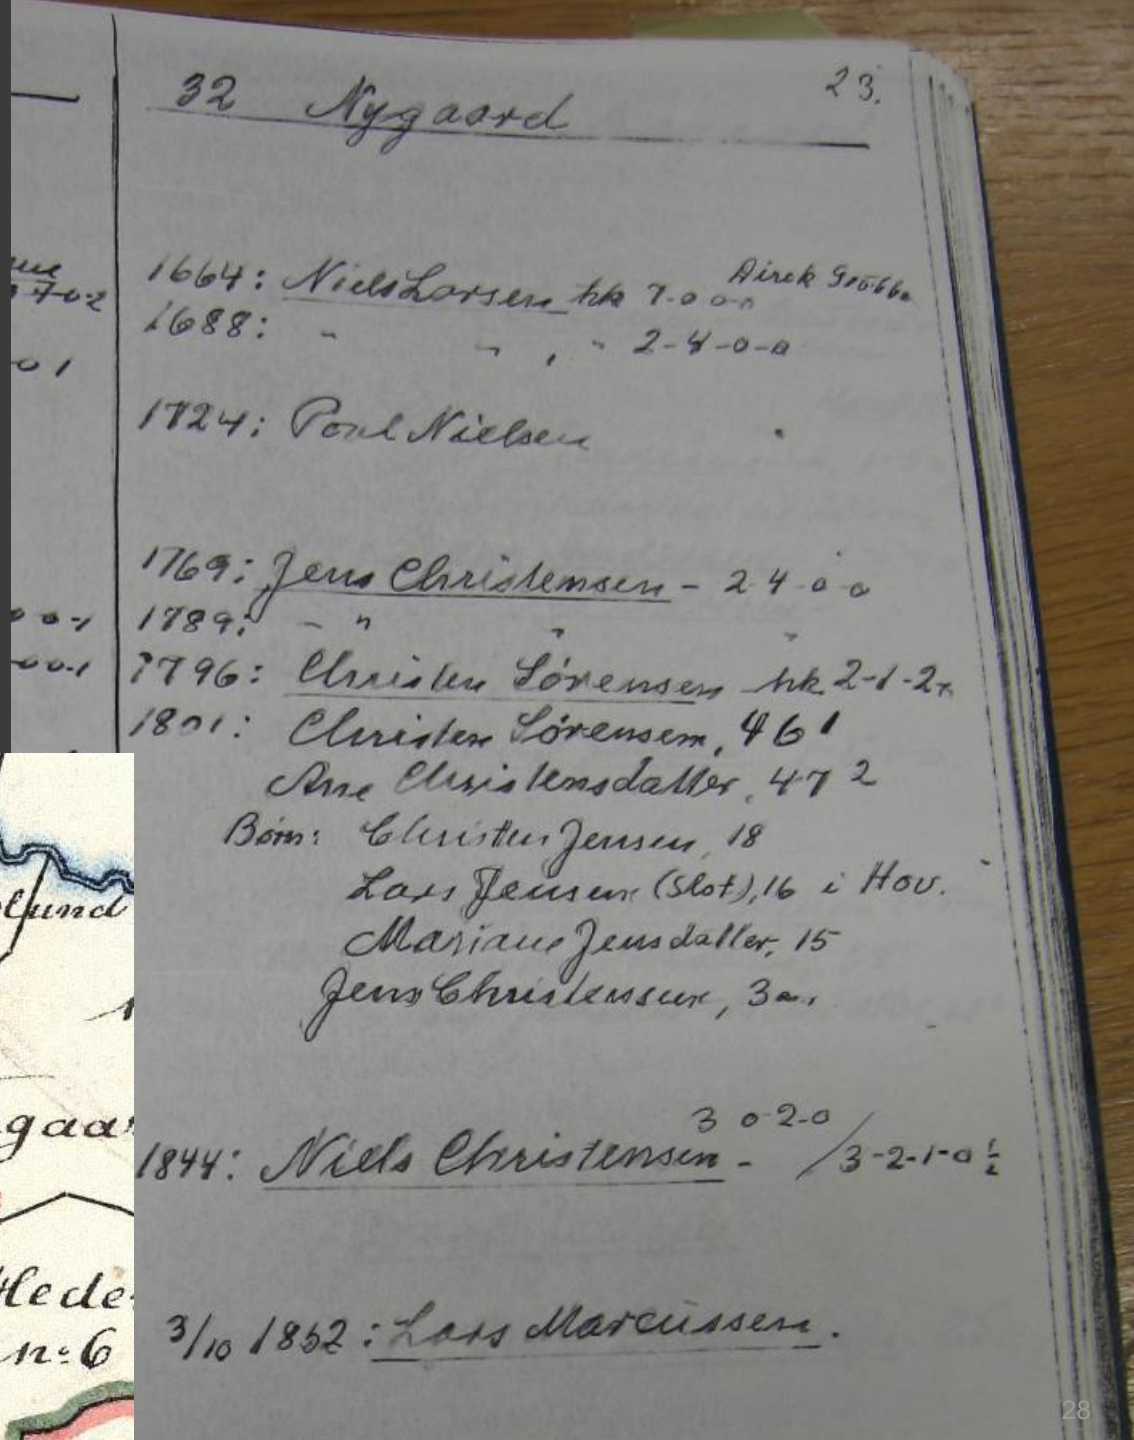 32 Nygaard
23.
1664: Niels Larsen hk 7-0-0-0
1688: " " , " 2-4-0-0
1724: Poul Nielsen
1769: Jens Christensen - 2 4-0-0
1789: - " " "
1796: Christen Sörensen hk 2-1-2
1801: Christen Sörensen, 46 1
Ane Christensdatter, 47 2
Børn: Christen Jensen, 18
Lars Jensen (Slot), 16 i Hov.
Mariane Jensdatter, 15
Jens Christensen, 3
3 0-2-0
1844: Niels Christensen - /3-2-1-0 ½
3/10 1852: Lars Marcussen.
70-2
01
00-1
00-1
lund
gaar
Hede
n:6
28